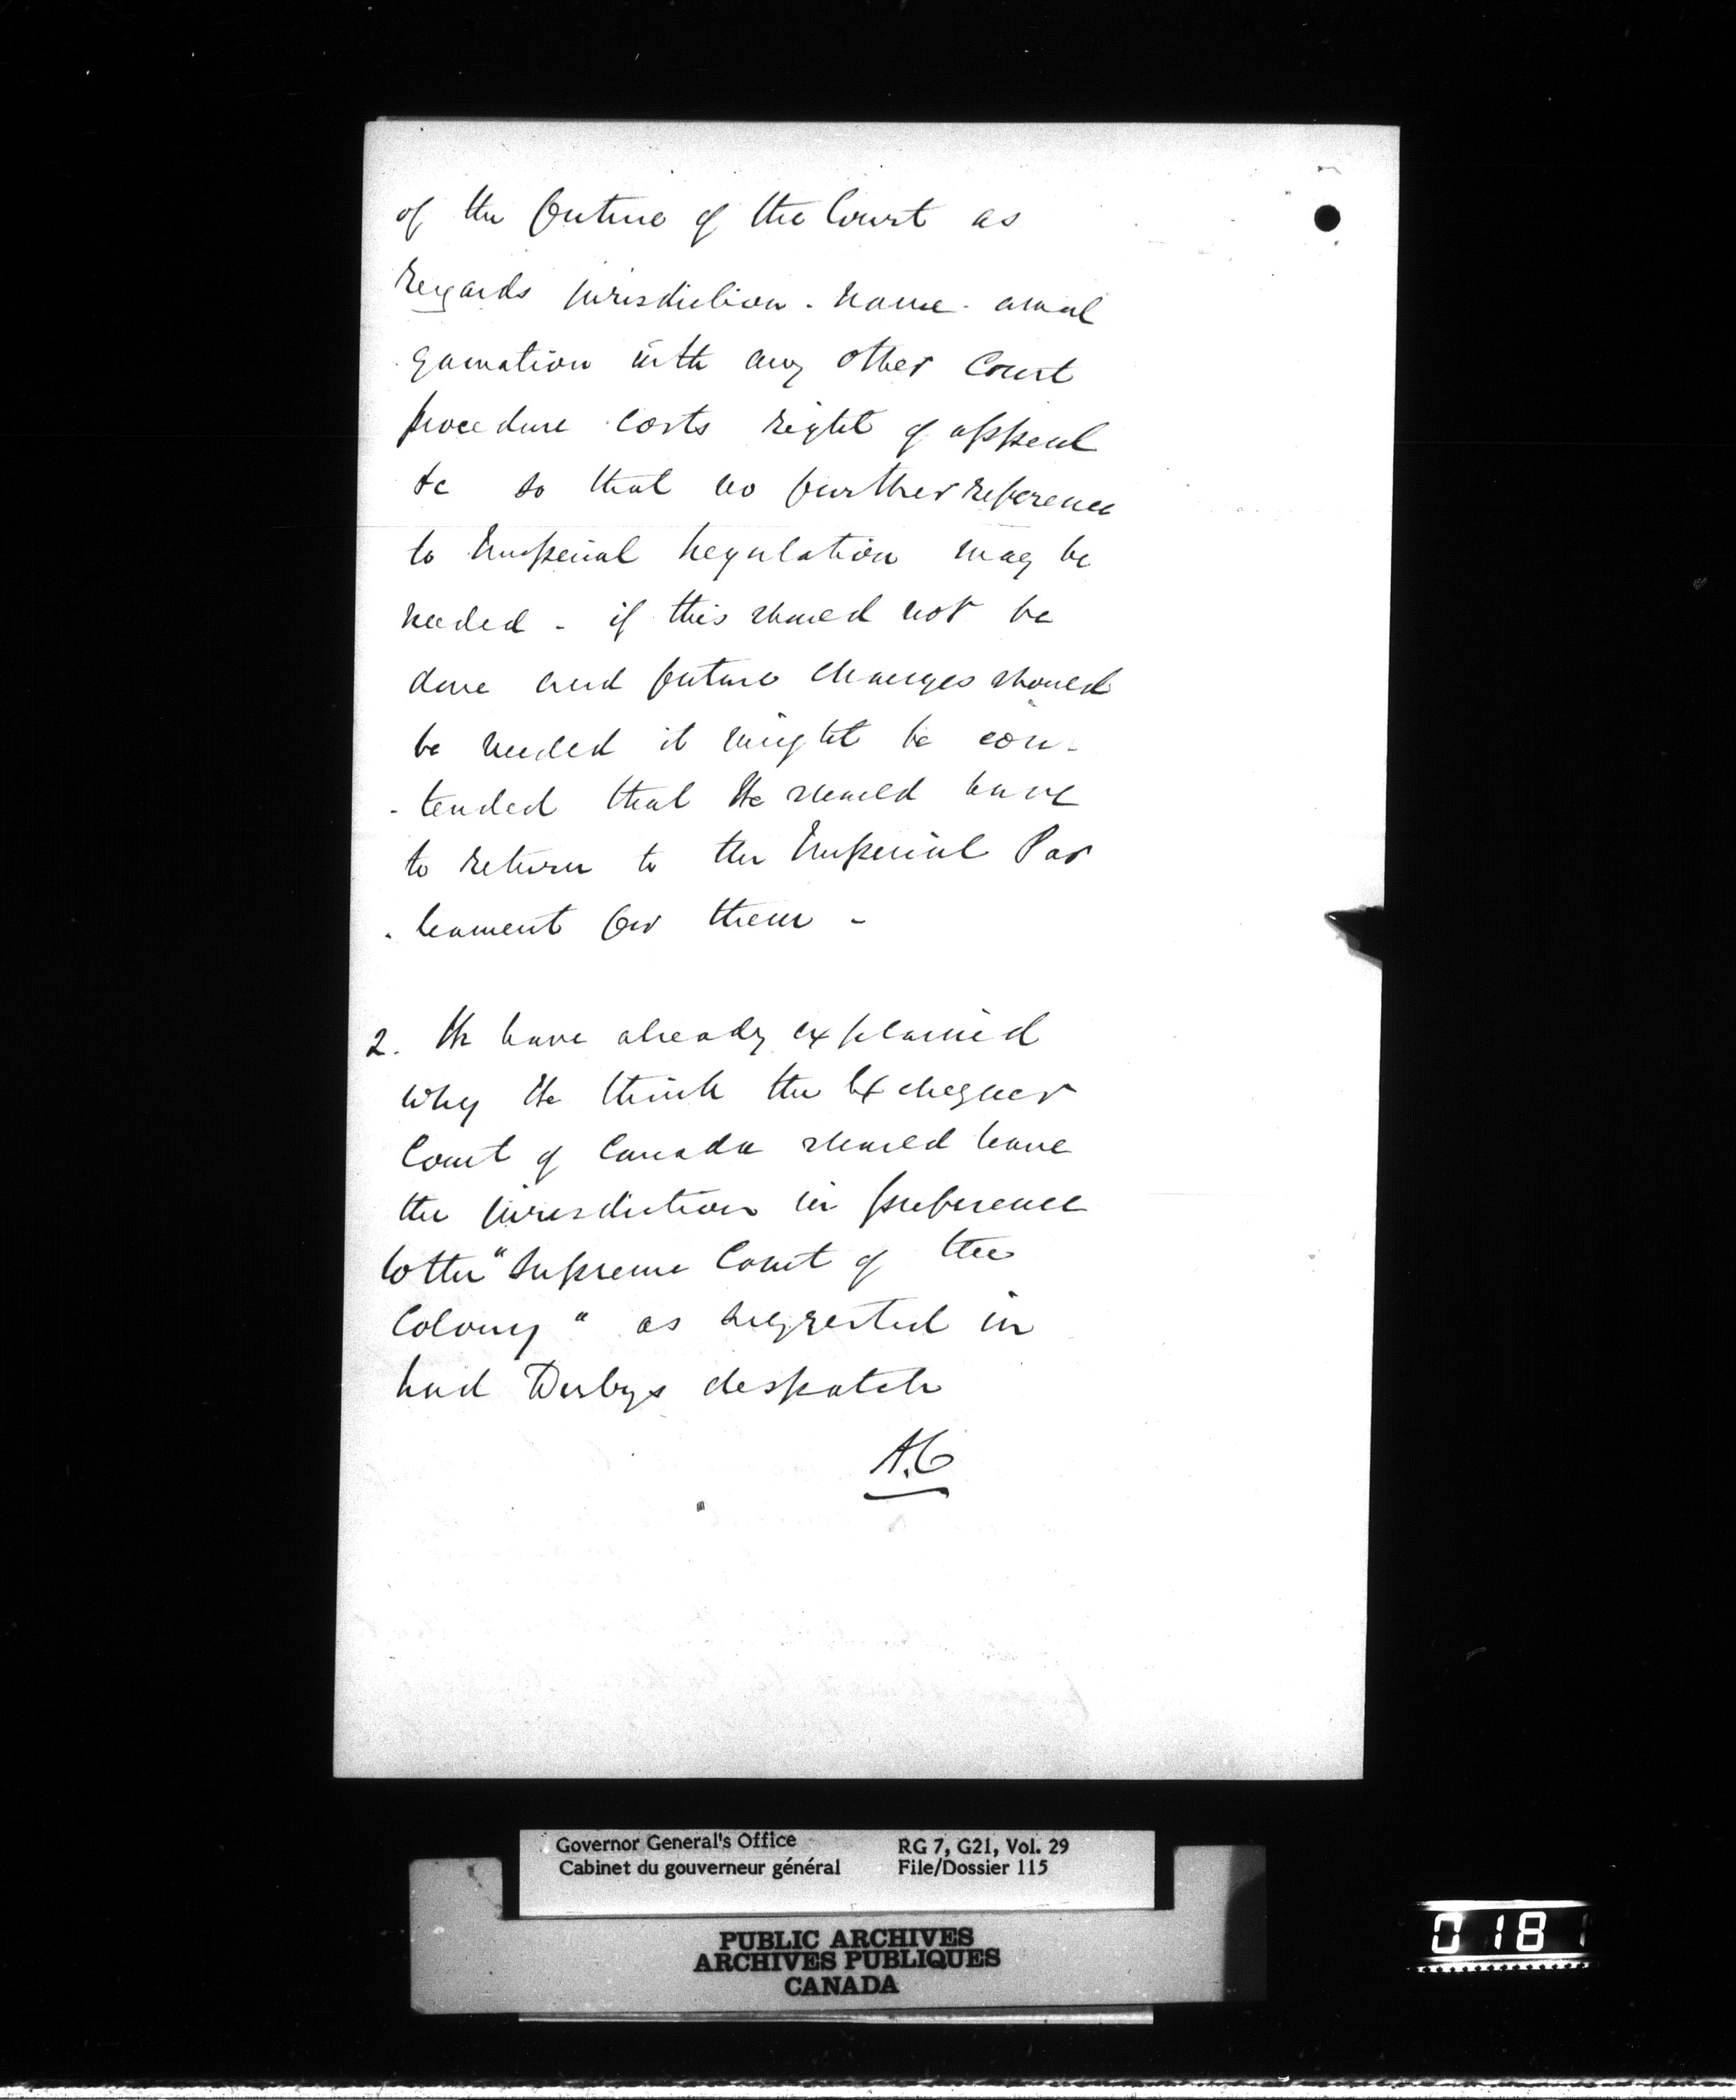 of the future of the Court as
regards jurisdiction - name - amal
gamation with any other Court
procedure costs right of appeal
&c so that no further reference
to Imperial Legislation may be
needed - if this should not be
done and future changes should
be needed it might be con-
-tended that We should have
to return to the Imperial Par
-liament for them -
2. We have already explained
why We think the Exchequer
Court of Canada should have
the jurisdiction in preference
to the "Supreme Court of the
Colony" as suggested in
Lord Derbys despatch
A.C
Governor General's Office
Cabinet du gouverneur général
RG 7, G21, Vol. 29
File/Dossier 115
PUBLIC ARCHIVES
ARCHIVES PUBLIQUES
CANADA
0181